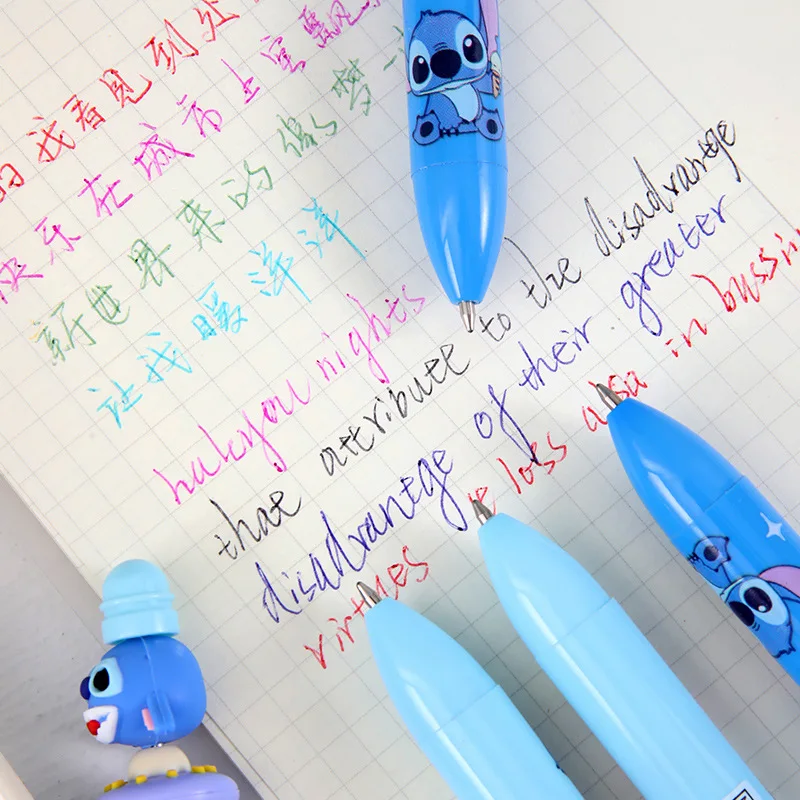 的我看见到处
快乐在城市上空飘
新世界来的像梦一
让我暖洋洋
halcyon nights
that attribute to the disadvantage
disadvantage of their greater
virtues loss also in bussin